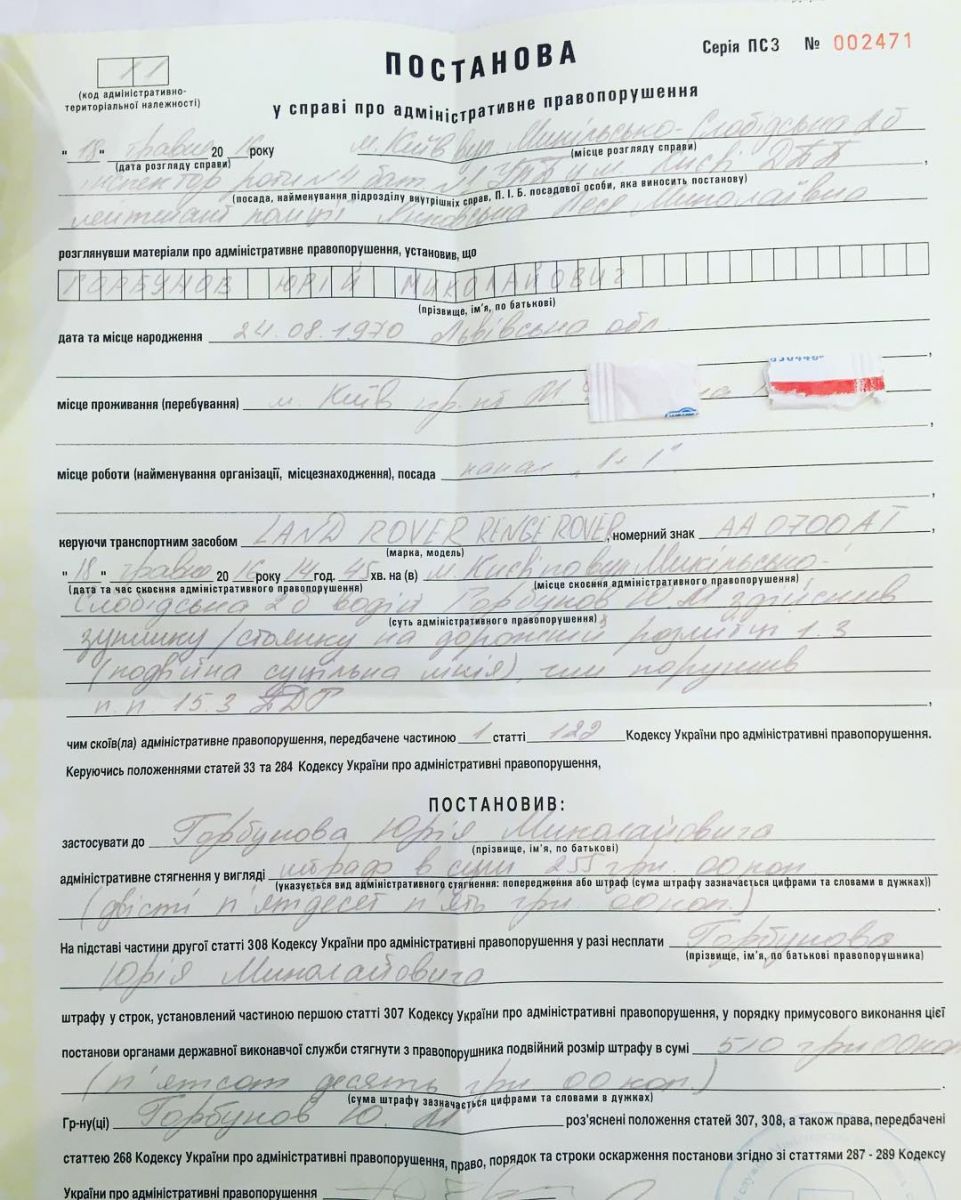 11
Серія ПСЗ № 002471
(код адміністративно-
територіальної належності)
ПОСТАНОВА
у справі про адміністративне правопорушення
"18" травня 2016 року м. Київ вул Микільсько-Слобідська 2б
(дата розгляду справи) (місце розгляду справи)
інспектор роти №4 бат Києві ДПП,
(посада, найменування підрозділу внутрішніх справ, П. І. Б. посадової особи, яка виносить постанову)
лейтенант поліції Миколаївна
розглянувши матеріали про адміністративне правопорушення, установив, що
ГОРБУНОВ ЮРІЙ МИКОЛАЙОВИЧ
(прізвище, ім'я, по батькові)
дата та місце народження 24.08.1970 Львівська обл.
,
місце проживання (перебування) м. Київ
,
місце роботи (найменування організації, місцезнаходження), посада канал "1+1"
,
керуючи транспортним засобом LAND ROVER RENGE ROVER, номерний знак АА0700АТ,
(марка, модель)
"18" травня 2016 року 14 год. 45 хв. на (в) м Києві по вул Микільсько-
(дата та час скоєння адміністративного правопорушення) (місце скоєння адміністративного правопорушення)
Слобідська 2б водій Горбунов Ю.М здійснив
(суть адміністративного правопорушення)
зупинку/стоянку на дорожній розмітці 1.3
(подвійна суцільна лінія), чим порушив
п.п. 15.3 ПДР,
чим скоїв(ла) адміністративне правопорушення, передбачене частиною 1 статті 122 Кодексу України про адміністративні правопорушення.
Керуючись положеннями статей 33 та 284 Кодексу України про адміністративні правопорушення,
ПОСТАНОВИВ:
застосувати до Горбунова Юрія Миколайовича
(прізвище, ім'я, по батькові)
адміністративне стягнення у вигляді штраф в сумі 255 грн. 00 коп
(указується вид адміністративного стягнення: попередження або штраф (сума штрафу зазначається цифрами та словами в дужках))
(двісті п'ятдесят п'ять грн 00 коп.).
На підставі частини другої статті 308 Кодексу України про адміністративні правопорушення у разі несплати Горбунова
(прізвище, ім'я, по батькові правопорушника)
Юрія Миколайовича
штрафу у строк, установлений частиною першою статті 307 Кодексу України про адміністративні правопорушення, у порядку примусового виконання цієї
постанови органами державної виконавчої служби стягнути з правопорушника подвійний розмір штрафу в сумі 510 грн 00 коп
(п'ятсот десять грн 00 коп.)
(сума штрафу зазначається цифрами та словами в дужках)
Гр-ну(ці) Горбунов Ю. М роз'яснені положення статей 307, 308, а також права, передбачені
статтею 268 Кодексу України про адміністративні правопорушення, право, порядок та строки оскарження постанови згідно зі статтями 287 - 289 Кодексу
України про адміністративні правопорушення